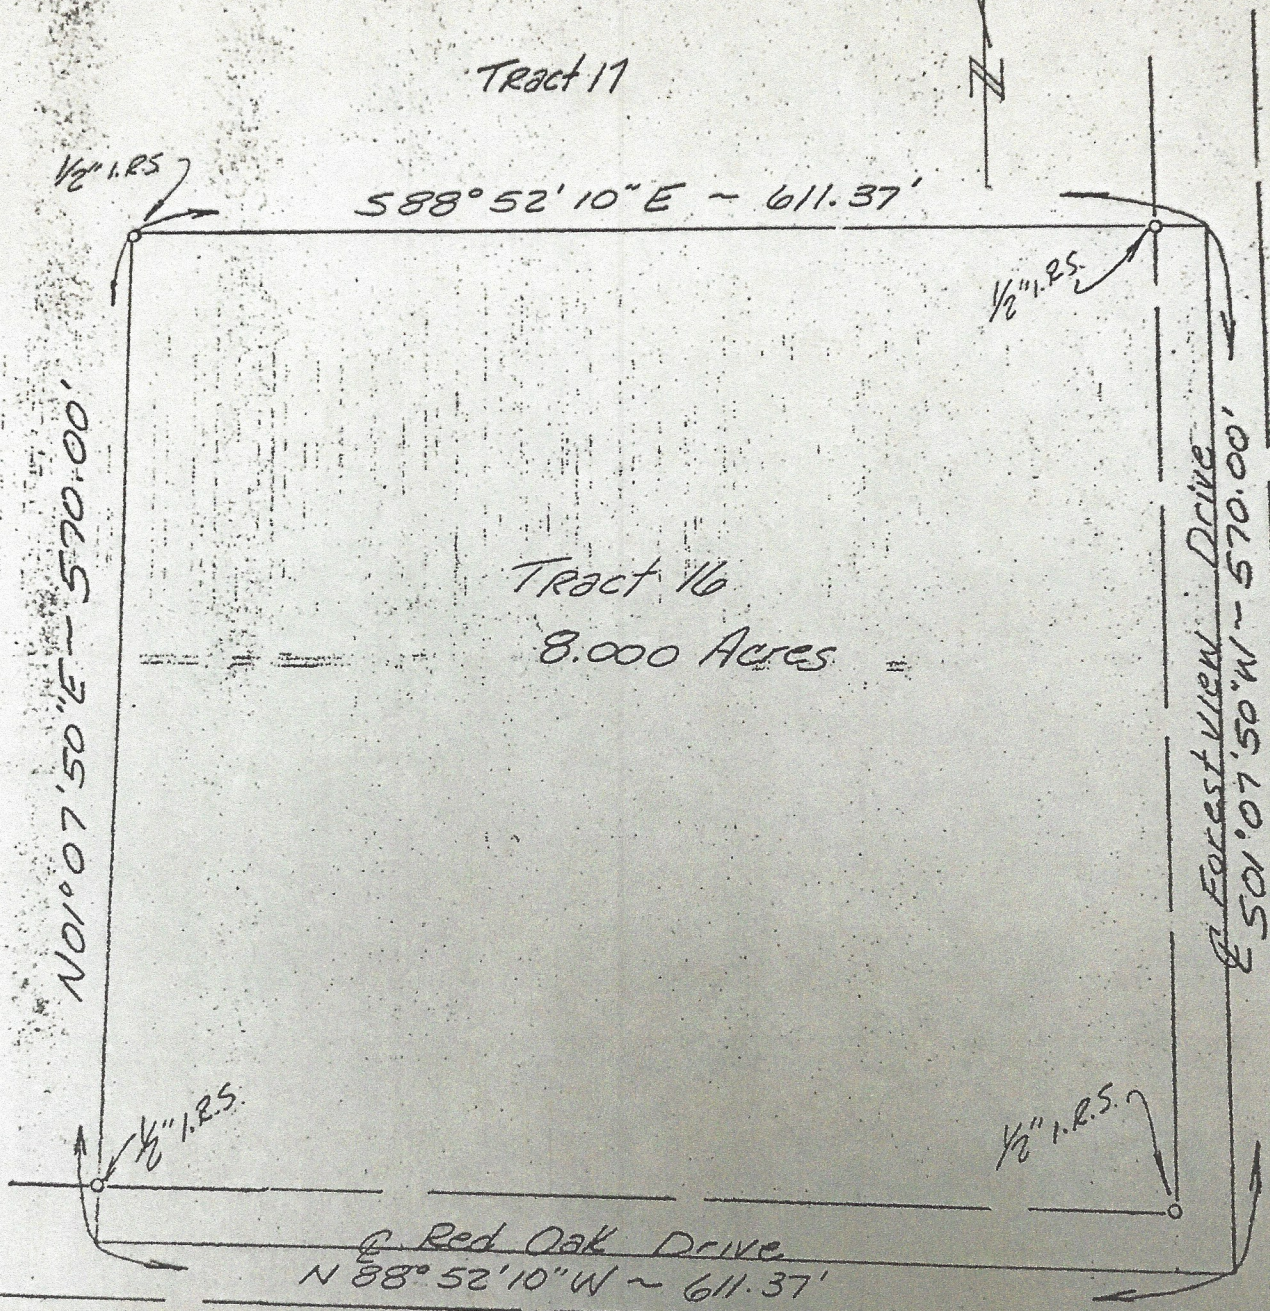 N
Tract 17
1/2" I.R.S.
S88°52'10"E ~ 611.37'
1/2" I.R.S.
N01°07'50"E ~ 570.00'
Tract 16
8.000 Acres
℄ Forest View Drive
S01°07'50"W ~ 570.00'
1/2" I.R.S.
1/2" I.R.S.
℄ Red Oak Drive
N 88°52'10"W ~ 611.37'